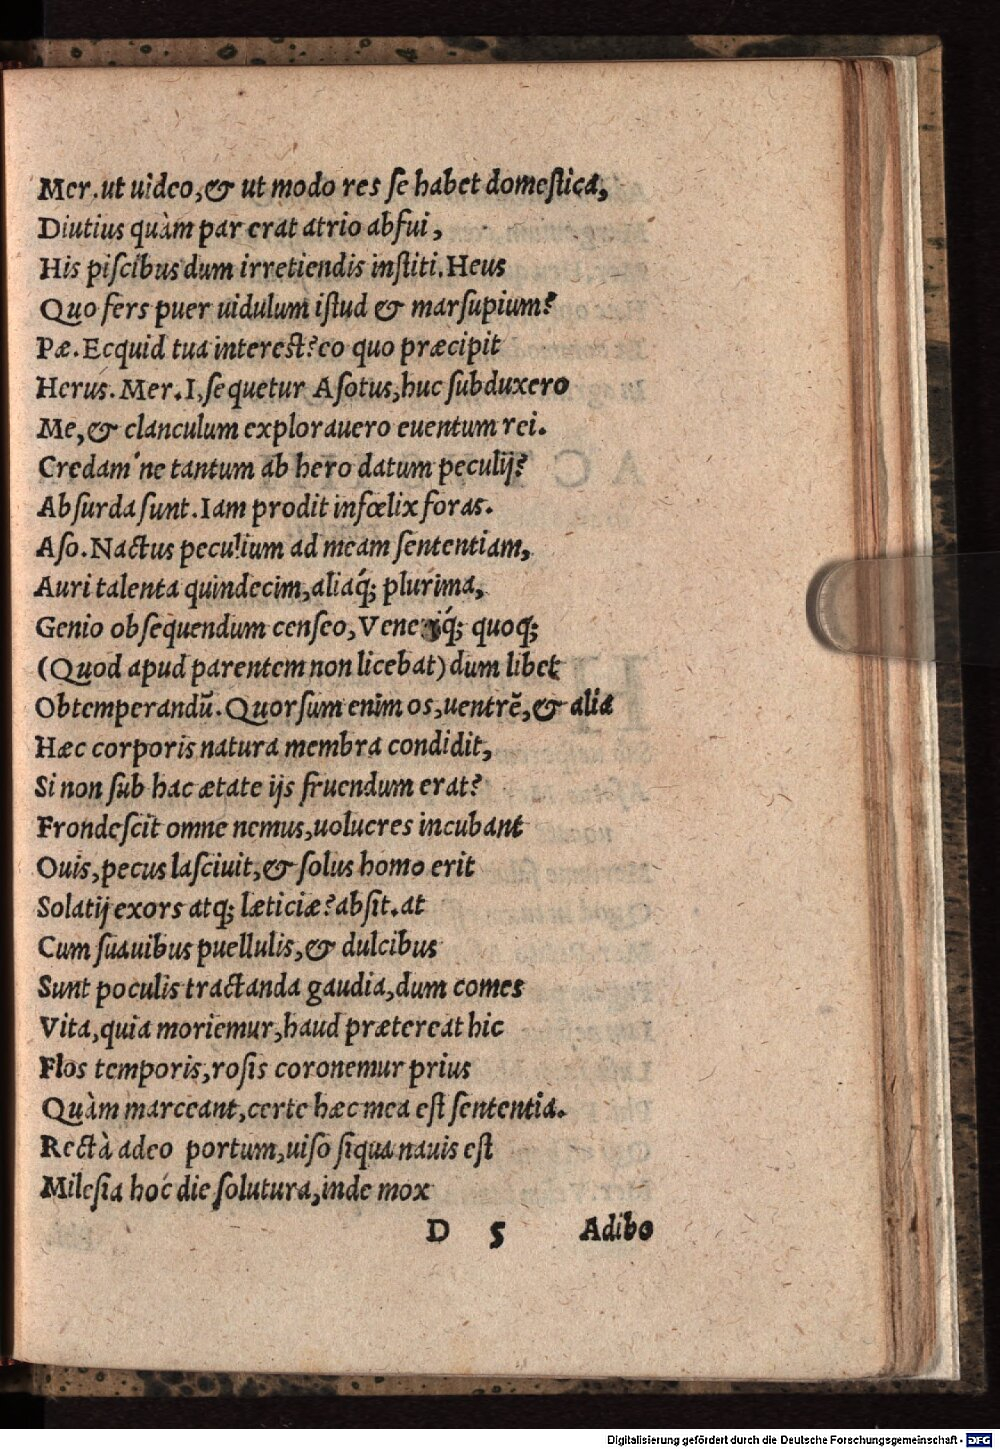 Mer. ut uideo, & ut modo res se habet domestica,
Diutius quàm par erat atrio abfui,
His piscibus dum irretiendis institi. Heus
Quo fers puer uidulum istud & marsupium?
Pæ. Ecquid tua interest? eo quo præcipit
Herus. Mer. I, sequetur Asotus, huc subduxero
Me, & clanculum explorauero euentum rei.
Credam'ne tantum ab hero datum peculij?
Absurda sunt. Iam prodit infœlix foras.
Aso. Nactus peculium ad meam sententiam,
Auri talenta quindecim, aliaq́; plurima,
Genio obsequendum censeo, Veneriq́; quoq;
(Quod apud parentem non licebat) dum libet
Obtemperandũ. Quorsum enim os, uentrẽ, & alia
Hæc corporis natura membra condidit,
Si non sub hac ætate ijs fruendum erat?
Frondescit omne nemus, uolucres incubant
Ouis, pecus lasciuit, & solus homo erit
Solatij exors atq; læticiæ? absit. at
Cum suauibus puellulis, & dulcibus
Sunt poculis tractanda gaudia, dum comes
Vita, quia moriemur, haud prætereat hic
Flos temporis, rosis coronemur prius
Quàm marceant, certe hæc mea est sententia.
Rectà adeo portum, uiso siqua nauis est
Milesia hoc die solutura, inde mox
D 5 Adibo
Digitalisierung gefördert durch die Deutsche Forschungsgemeinschaft - DFG